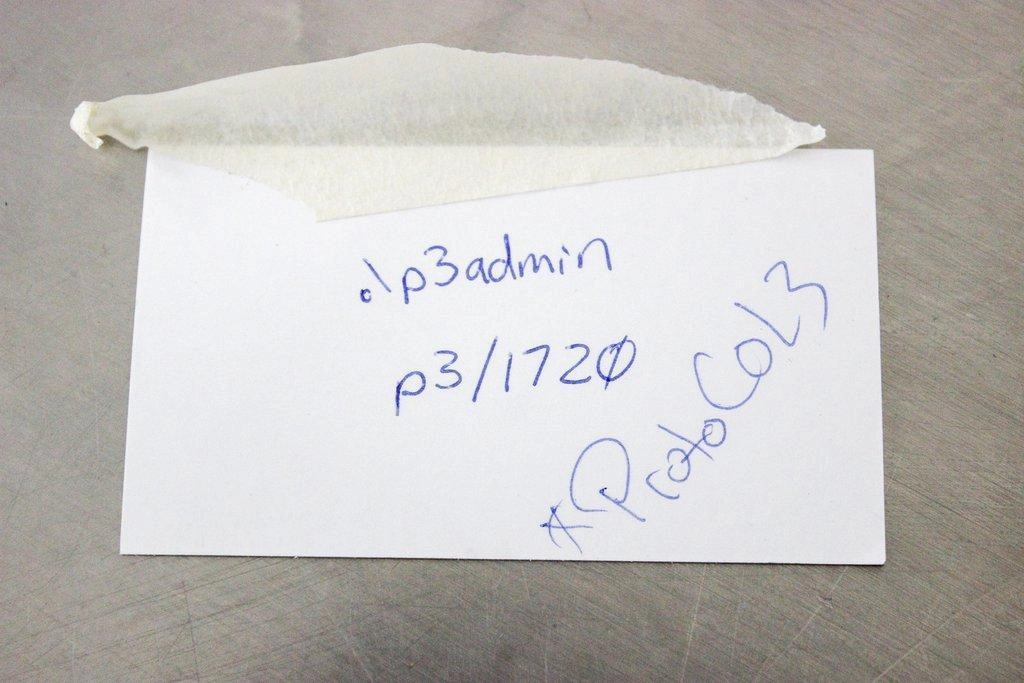 .\p3admin
p3/1720
*ProtoCol3